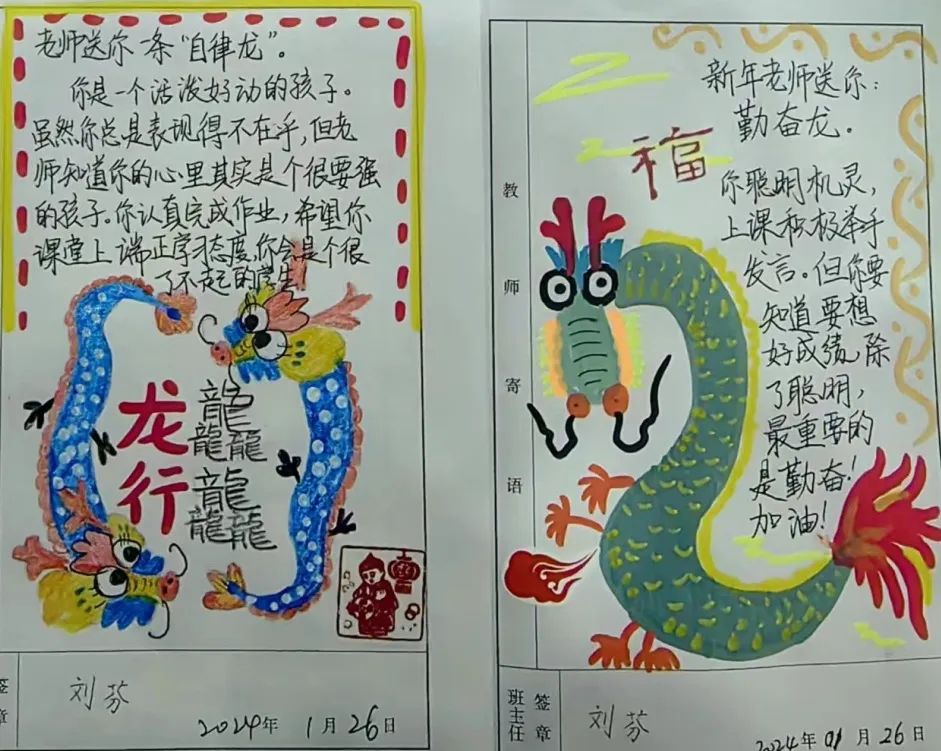 老师送你一条“自律龙”。
你是一个活泼好动的孩子。
虽然你总是表现得不在乎，但老
师知道你的心里其实是个很要强
的孩子。你认真完成作业，希望你
课堂上端正学习态度，你会是个很
了不起的学生！
龙行
龍
龍龍
龍
龍龍
签章
刘芬
2024年 1月26日
教师寄语
新年老师送你：
勤奋龙。
福
你聪明机灵，
上课积极举手
发言。但你要
知道要想
好成绩，除
了聪明，
最重要的
是勤奋！
加油！
班主任
签章
刘芬
2024年01月26日